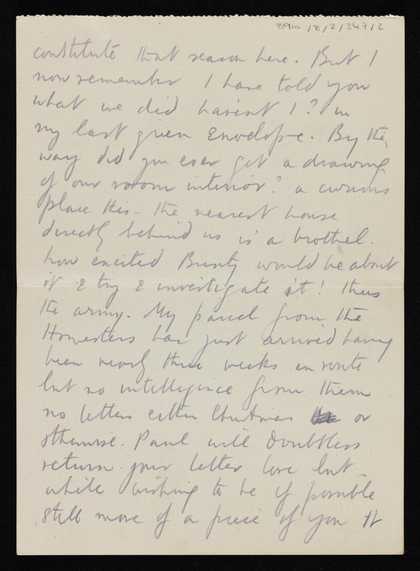 constitute that season here. But I
now remember I have told you
what we did havent I? in
my last green Envelope. By the
way did you ever get a drawing
of our room interior? a curious
place this - the nearest house
directly behind us is a brothel.
how excited Bunty would be about
it & try & investigate it! thus
the army. My parcel from the
Howesters has just arrived having
been nearly three weeks en route
but no intelligence from them
no letters either Christmas or
otherwise. Paul will doubtless
return your letter love but
while wishing to be if possible
still more of a piece of you it